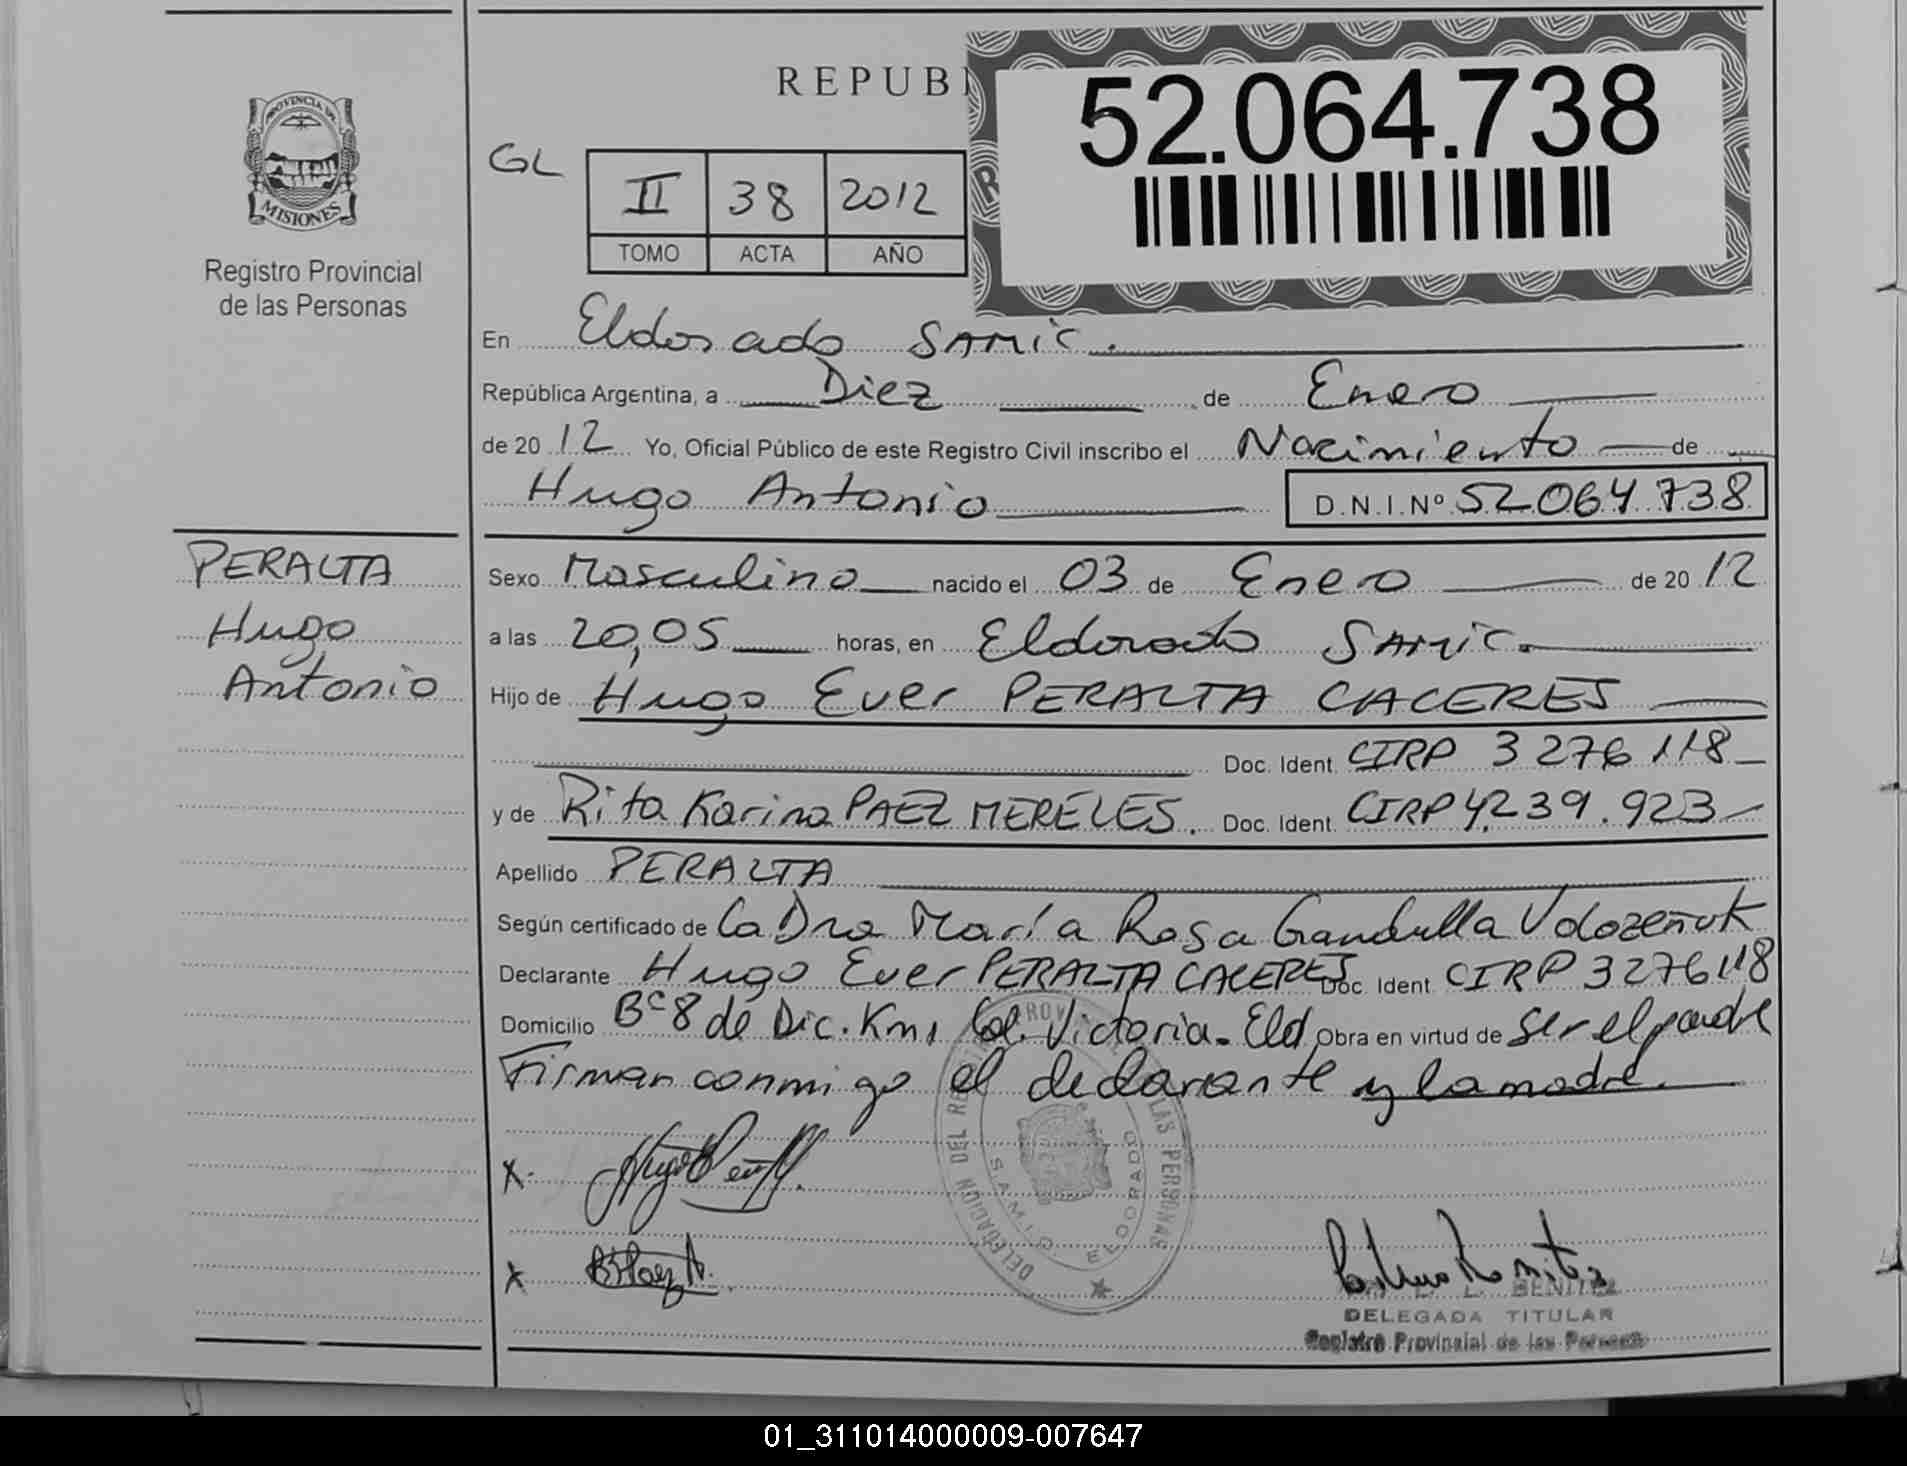 REPUB
52.064.738
PROVINCIA DE
MISIONES
Registro Provincial
de las Personas
GL
II 38 2012
TOMO ACTA AÑO
En Eldorado SAMIC.
República Argentina, a Diez de Enero
de 2012 Yo, Oficial Público de este Registro Civil inscribo el Nacimiento de
Hugo Antonio D.N.I.Nº 52.064.738
PERALTA
Hugo
Antonio
Sexo Masculino nacido el 03 de Enero de 2012
a las 20,05 horas, en Eldorado SAMIC.
Hijo de Hugo Ever PERALTA CACERES
Doc. Ident. CIRP 3276118
y de Rita Karina PAEZ MERELES. Doc. Ident. CIRP 4.239.923
Apellido PERALTA
Según certificado de La Dra María Rosa Gandulla
Declarante Hugo Ever PERALTA CACERES Doc. Ident. CIRP 3276118
Domicilio Bº 8 de Dic. Km1 Col. Victoria. Eld Obra en virtud de ser el padre
Firman conmigo el declarante y la madre.
DELEGACION DEL REGISTRO PROVINCIAL DE LAS PERSONAS
S.A.M.I.C. ELDORADO
X.
X
BENITEZ
DELEGADA TITULAR
Registro Provincial de las Personas
01_311014000009-007647